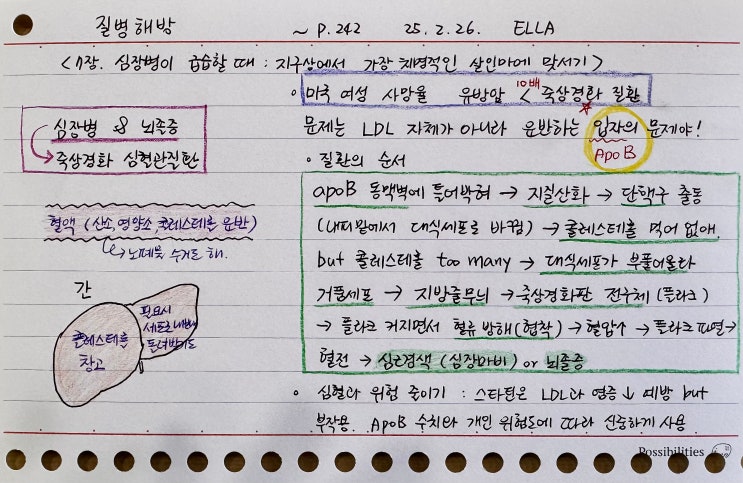 질병 해방 ~ P.242 25. 2. 26. ELLA
<7장. 심장병이 급습할 때 : 지구상에서 가장 치명적인 살인마에 맞서기>
심장병 & 뇌졸중
죽상경화 심혈관질환
혈액 (산소, 영양소, 콜레스테롤 운반)
노폐물 수거도 해.
간
콜레스테롤
창고
필요시
세포로 내보내
돌려받기도
• 미국 여성 사망율 유방암 < 죽상경화 질환
10배
문제는 LDL 자체가 아니라 운반하는 입자의 문제야!
Apo B
• 질환의 순서
apoB 동맥벽에 틀어박혀 → 지질산화 → 단핵구 출동
(내피밑에서 대식세포로 바뀜) → 콜레스테롤 먹어 없애.
but 콜레스테롤 too many → 대식세포가 부풀어올라
거품세포 → 지방줄무늬 → 죽상경화판 전구체 (플라크)
→ 플라크 커지면서 혈류 방해 (협착) → 혈압↑ → 플라크 파열 →
혈전 → 심근경색 (심장마비) or 뇌졸중
• 심혈관 위험 줄이기 : 스타틴은 LDL과 염증 ↓ 예방 but
부작용. ApoB 수치와 개인 위험도에 따라 신중하게 사용
Possibilities